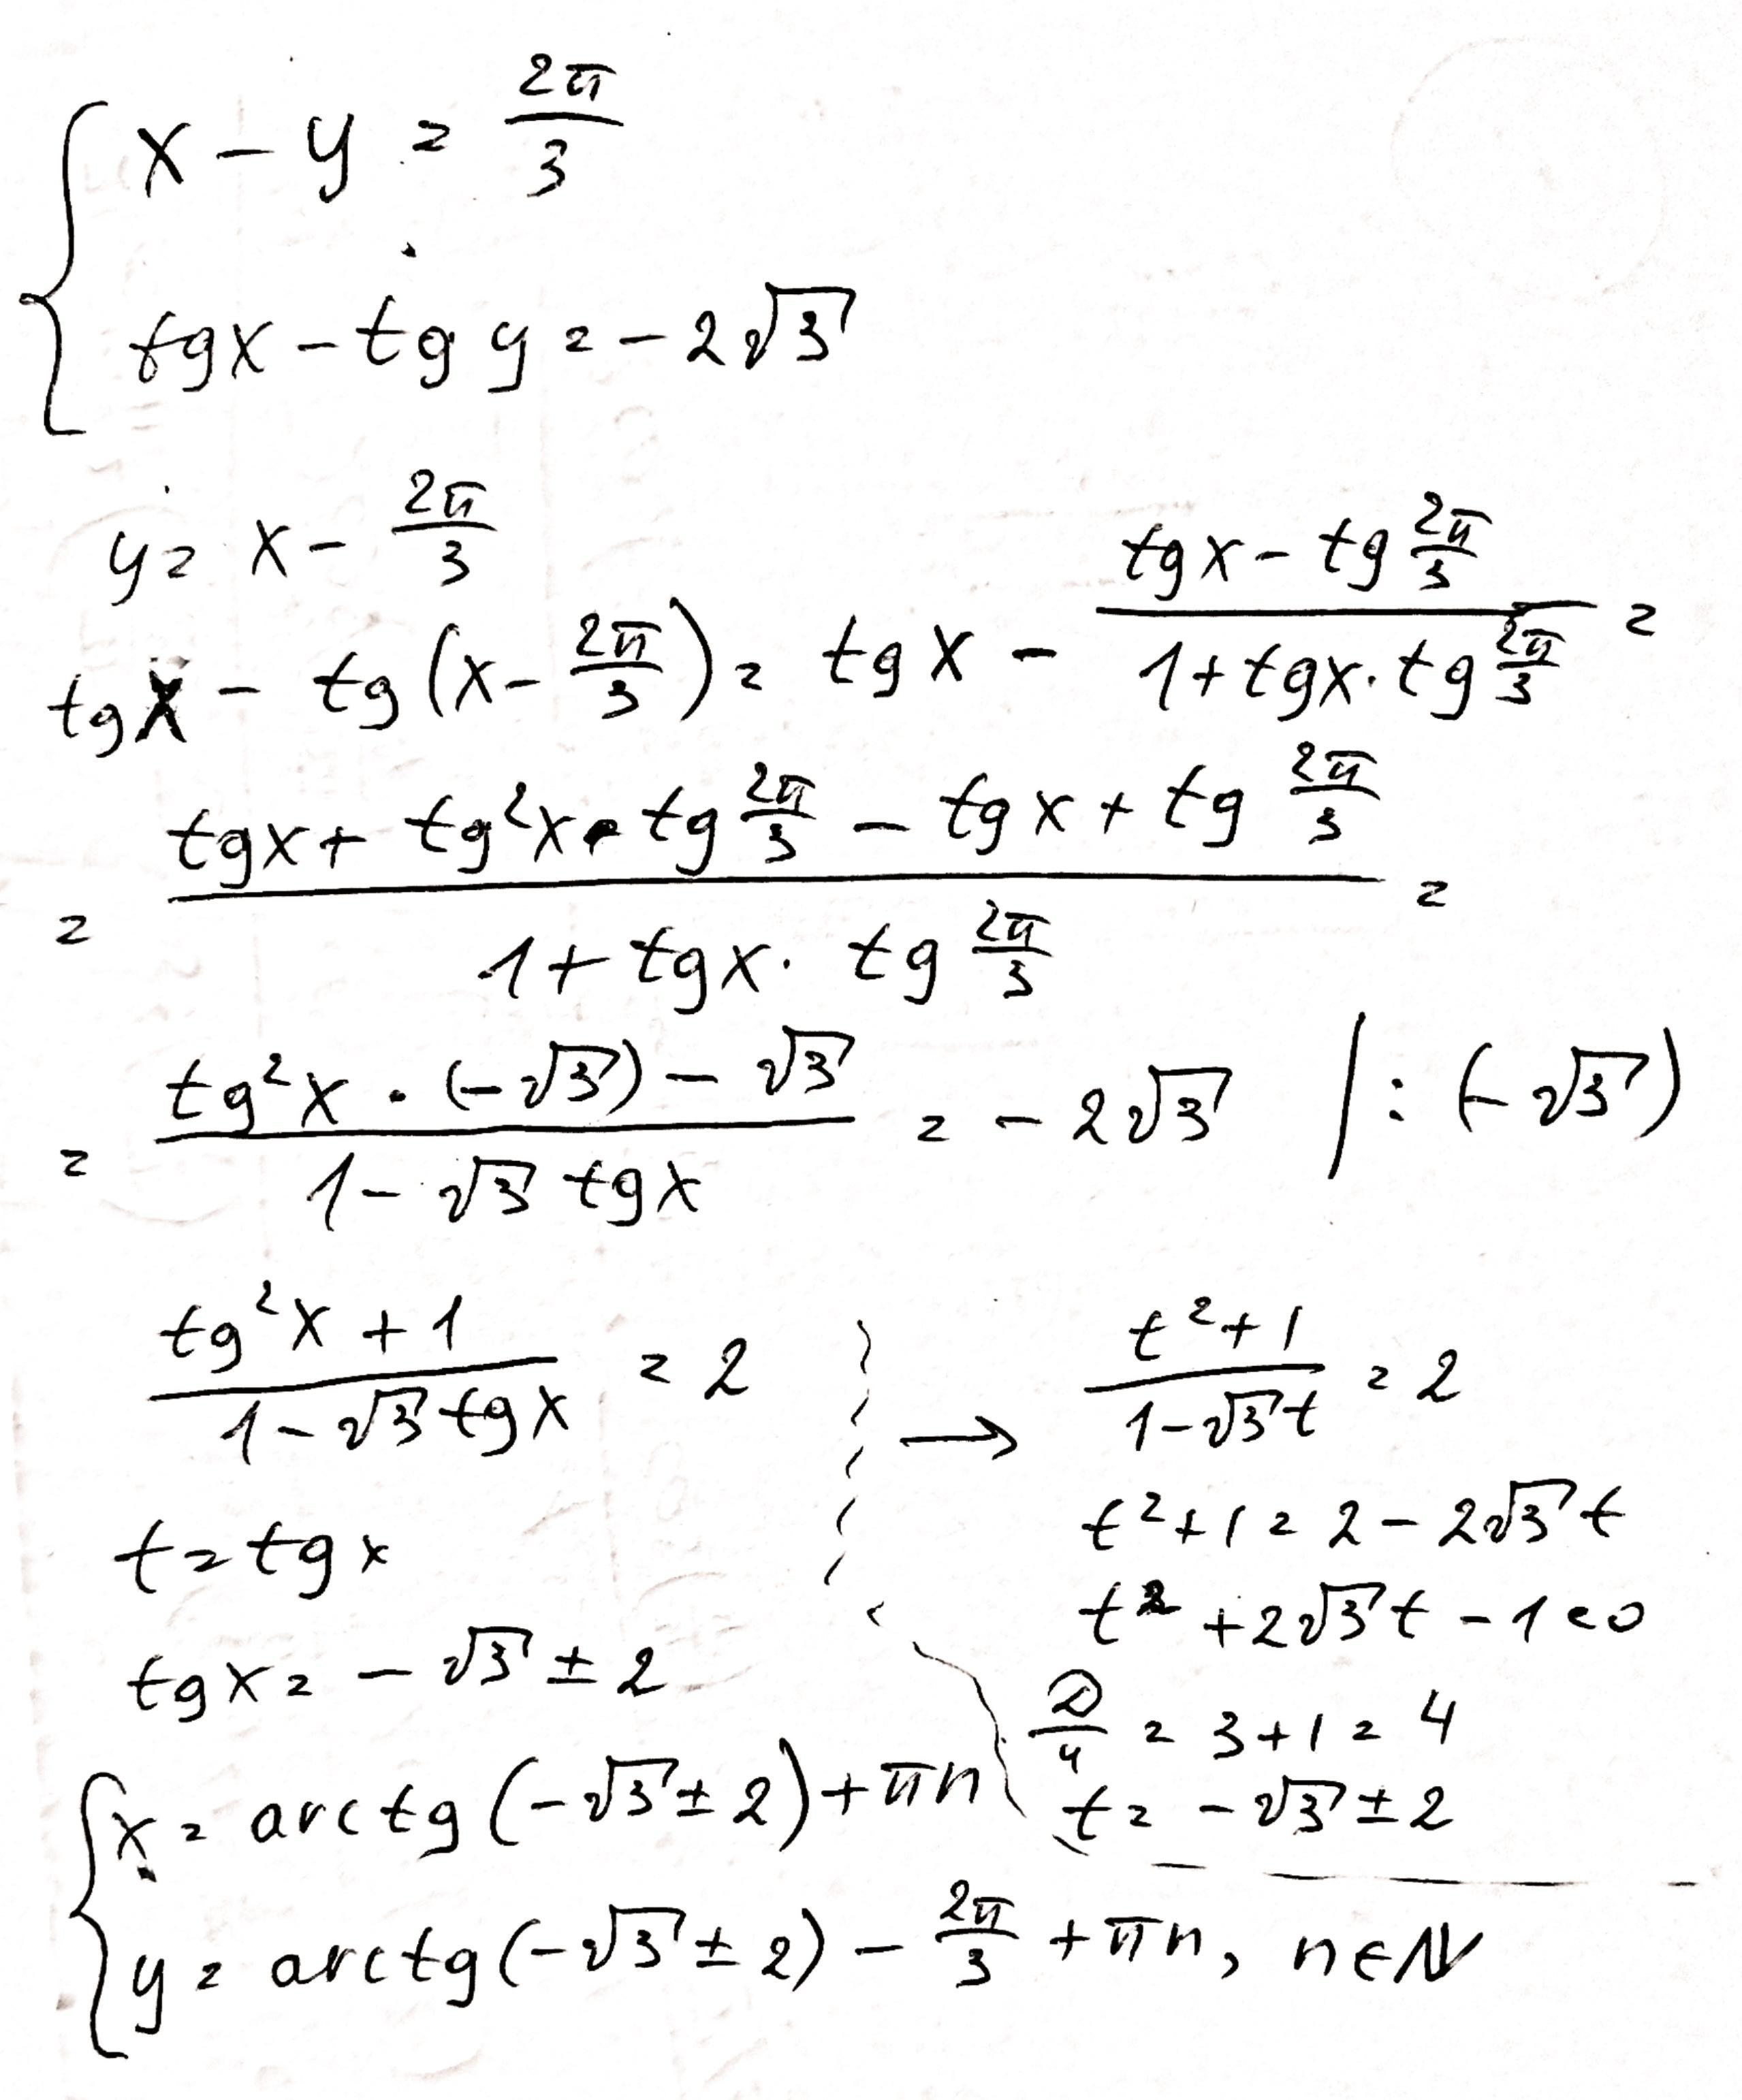 { x - y = 2π/3
tgx - tg y = -2√3
y = x - 2π/3
tgx - tg(x - 2π/3) = tgx - (tgx - tg 2π/3)/(1 + tgx · tg 2π/3) =
= (tgx + tg²x · tg 2π/3 - tgx + tg 2π/3)/(1 + tgx · tg 2π/3) =
= (tg²x · (-√3) - √3)/(1 - √3 tgx) = -2√3 | : (-√3)
(tg²x + 1)/(1 - √3 tgx) = 2 → (t² + 1)/(1 - √3t) = 2
t = tgx
t² + 1 = 2 - 2√3t
t² + 2√3t - 1 = 0
D/4 = 3 + 1 = 4
t = -√3 ± 2
tgx = -√3 ± 2
{ x = arctg(-√3 ± 2) + πn
y = arctg(-√3 ± 2) - 2π/3 + πn, n ∈ N